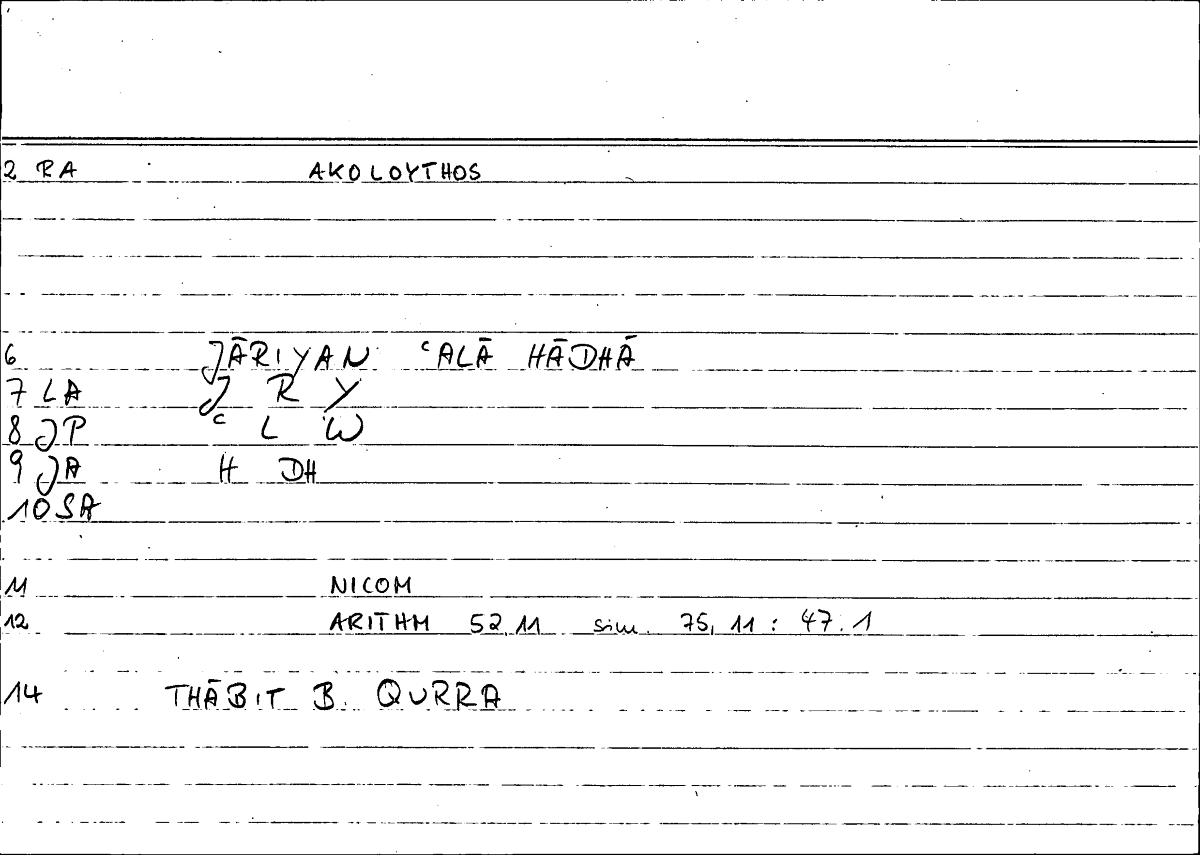 2 RA AKOLOYTHOS
6 JĀRIYAN ʿALĀ HĀDHĀ
7 LA J R Y
8 JP ʿ L W
9 JA H DH
10 SA
11 NICOM
12 ARITHM 52,11 sim. 75,11 : 47.1
14 THĀBIT B. QURRA